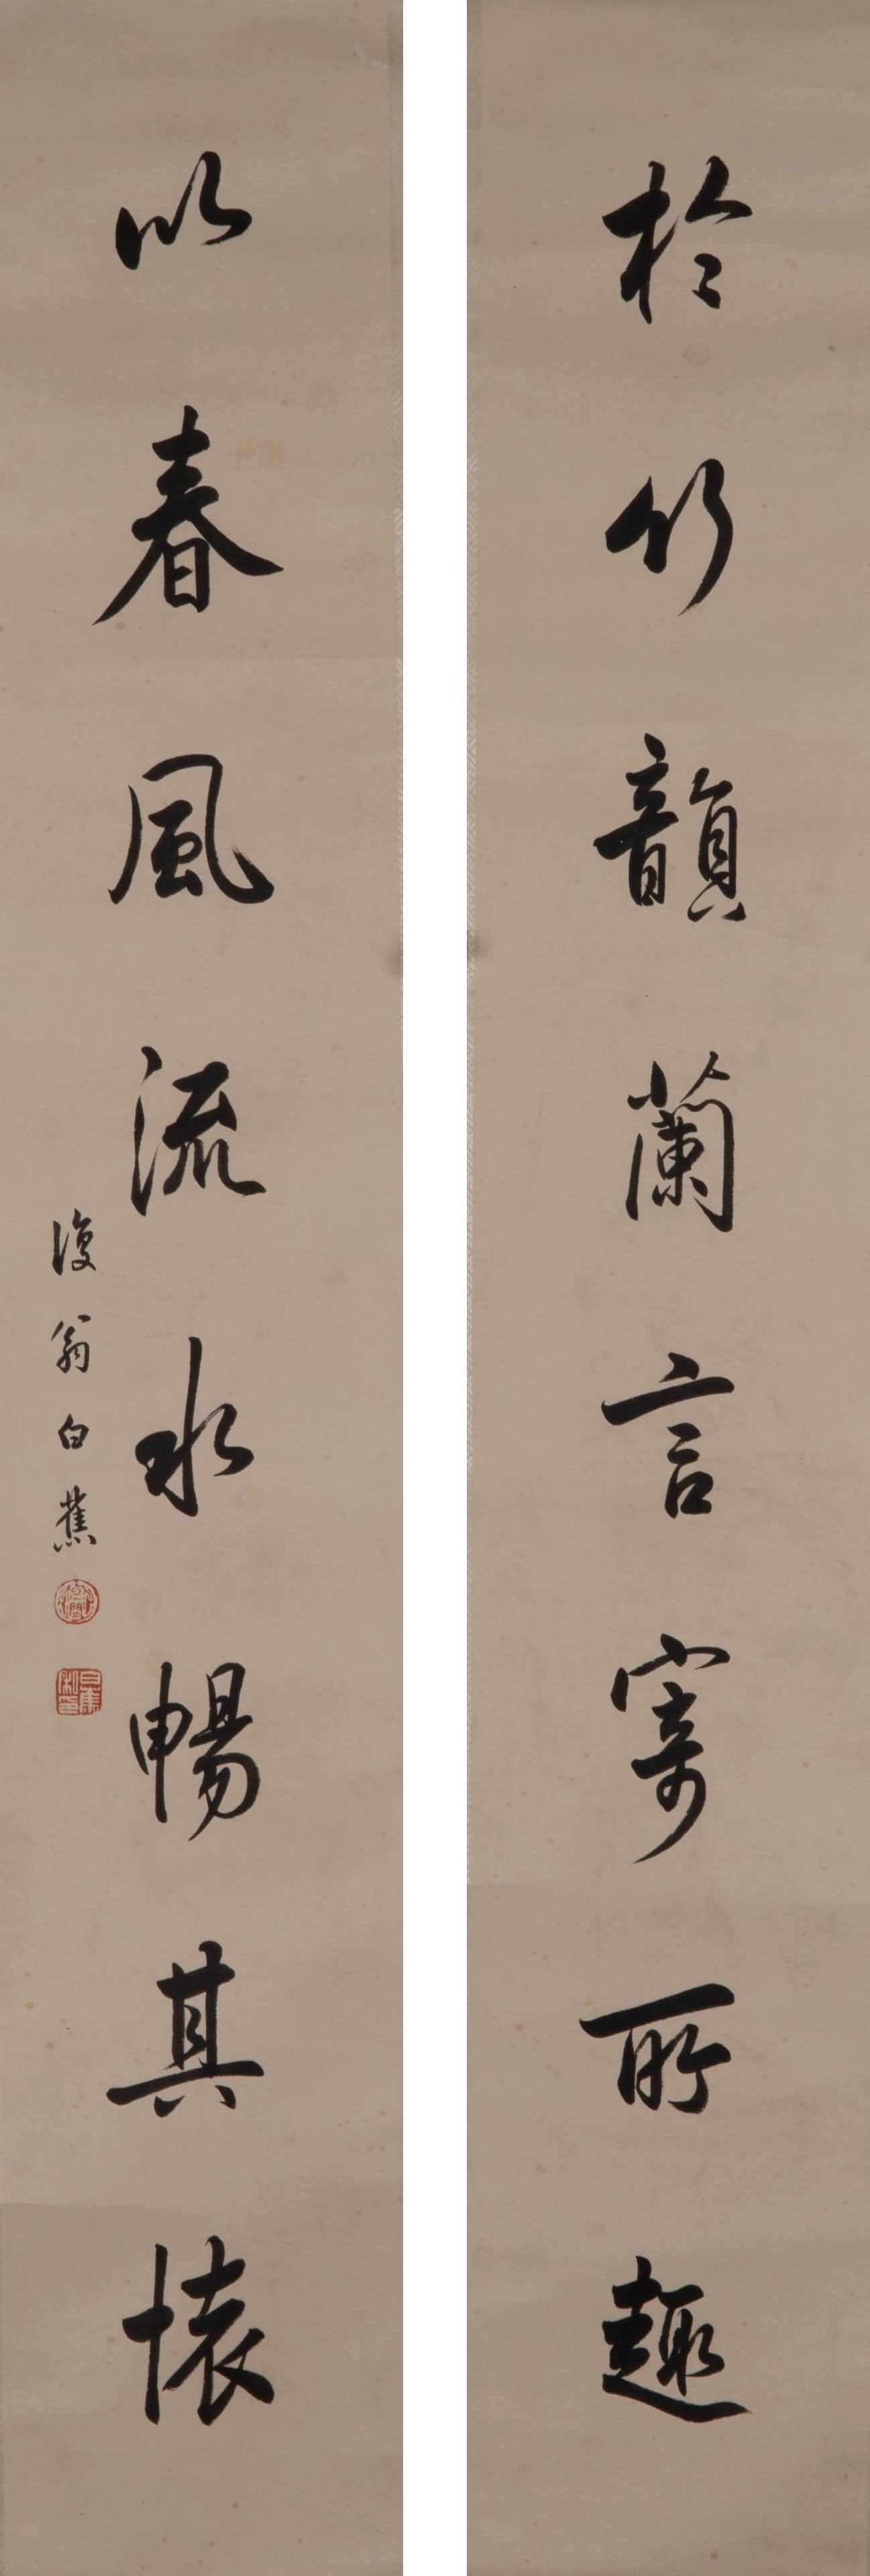 於竹韻蘭言寄所趣
以春風流水暢其懷
復翁白蕉